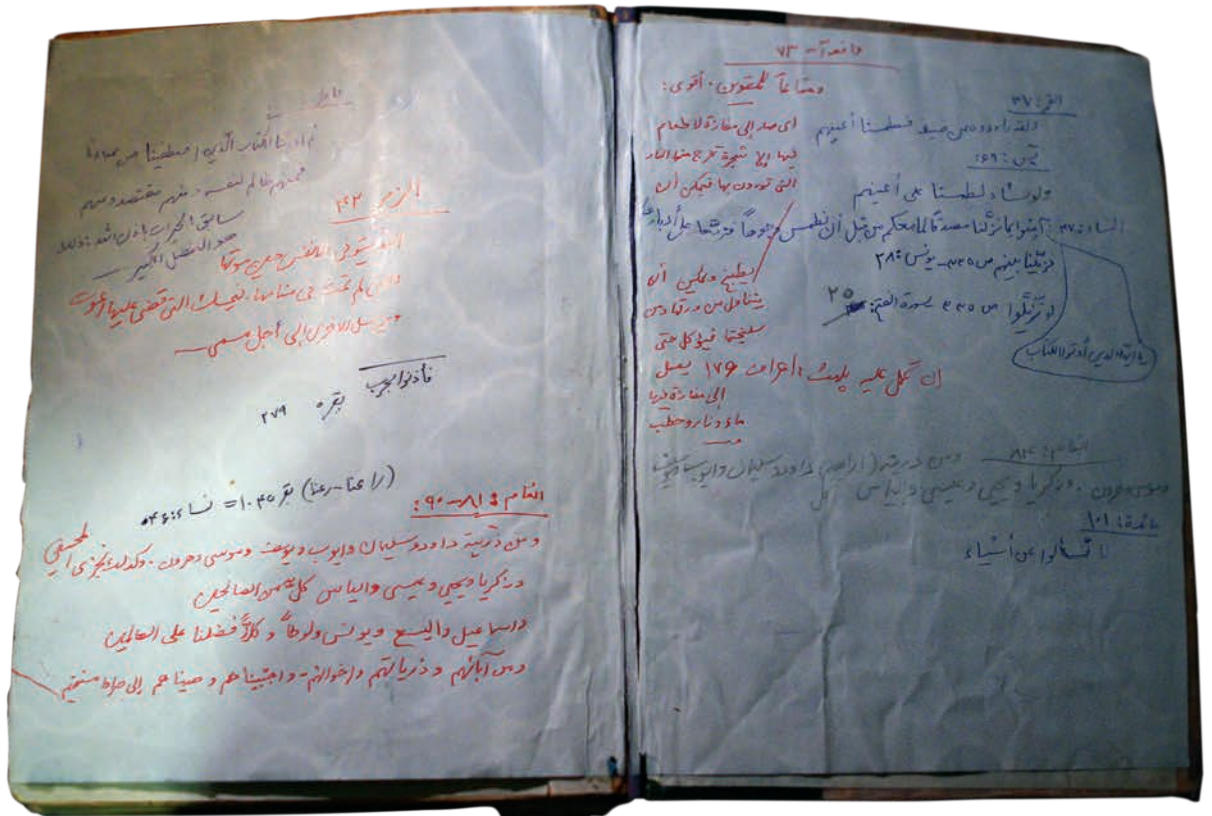 واقعه آ- ۷۳
ومتاعاً للمقوين. أقوى:
ای صار إلى مفازة لا طعام
فيها
التي تورون بها فيمكن أن
يطبخ ويمكن أن
حتى
إن تحمل عليه يلهث: اعراف ۱۷۶ يصل
إلى مفازة فيها
ماء و نار و حطب
القمر: ۳۷
ولقد راودوه عن ضيفه فطمسنا أعينهم
يس: ۶۶:
ولو نشاء لطمسنا على أعينهم
النساء: ۴۷: آمنوا بما نزّلنا مصدقاً لما معكم من قبل أن نطمس وجوهاً فنردّها على أدبارها
فزيّلنا بينهم ص - يونس: ۲۸
لو تزيّلوا ص سورة الفتح: ۲۵
يا أيها الذين أوتوا الكتاب
انعام: ۸۴
ومن ذريته (ابراهيم) داود و سليمان وايوب ويوسف
وموسى وهرون. وزكريا و يحيى و عيسى و الياس كل
مائدة: ۱۰۱
لا تسألوا عن أشياء
فاطر:
ثم اورثنا الكتاب الّذين اصطفينا من عبادنا
فمنهم ظالم لنفسه و منهم مقتصد و منهم
سابق بالخيرات باذن الله ذلك
هو الفضل الكبير
الزمر ۴۲
الله يتوفى الانفس حين موتها
والتي لم تمت في منامها. فيمسك التي قضى عليها الموت
ويرسل الاخرى إلى أجل مسمى
فأذنوا بحرب
بقره ۲۷۹
(راعنا - رعنا) بقره ۱۰۴ = نساء: ۴۶
انعام: ۸۱-۹۰:
ومن ذريته داود و سليمان و ايوب و يوسف و موسى وهرون. وكذلك نجزي المحسنين
وزكريا و يحيى و عيسى و الياس كل من الصالحين
واسماعيل و اليسع و يونس ولوطاً و كلاً فضلنا على العالمين
ومن آبائهم و ذرياتهم و اخوانهم - و اجتبيناهم و هديناهم إلى صراط مستقيم